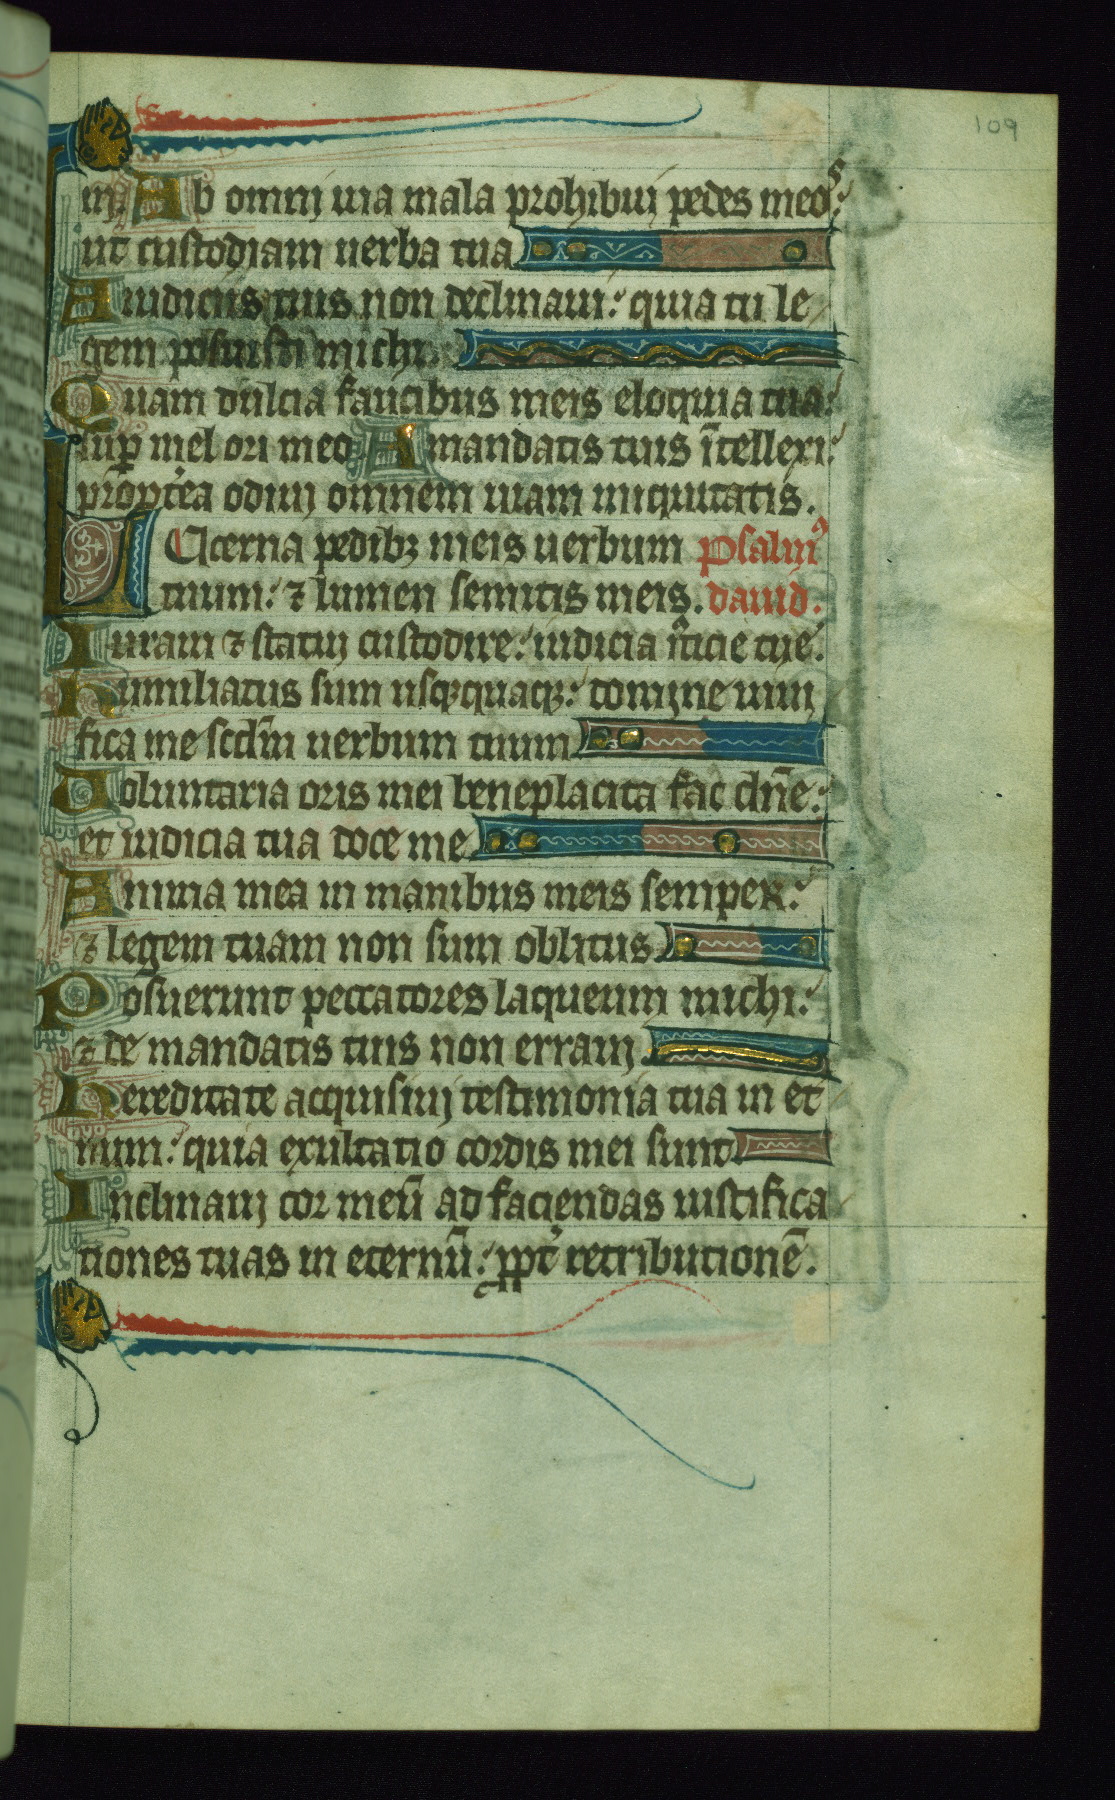 109
m. Ab omnj uia mala prohibuj pedes meos:
ut custodiam uerba tua
A iudiciis tuis non declinaui: quia tu le
gem posuisti michi.
Quam dulcia faucibus meis eloquia tua:
sup̄ mel ori meo A mandatis tuis ītellexi:
propt̾ea odiuj omnem uiam iniquitatis.
Lucerna pedibꝫ meis uerbum psalmꝰ
tuum: ⁊ lumen semitis meis. dauid.
Iuraui ⁊ statuj custodire: iudicia iusticie tue.
Humiliatus sum usqꝫquaqꝫ: domine uiuj
fica me scdm̄ uerbum tuum
Uoluntaria oris mei beneplacita fac dn̄e:
et iudicia tua doce me
Anima mea in manibus meis semper:
⁊ legem tuam non sum oblitus
Posuerunt peccatores laqueum michi:
⁊ de mandatis tuis non erraui.
Hereditate acquisiuj testimonia tua in et̾
num: quia exultatio cordis mei sunt
Inclinauj cor meū ad faciendas iustifica
tiones tuas in eternū: ꝓpt̾ retributionē.